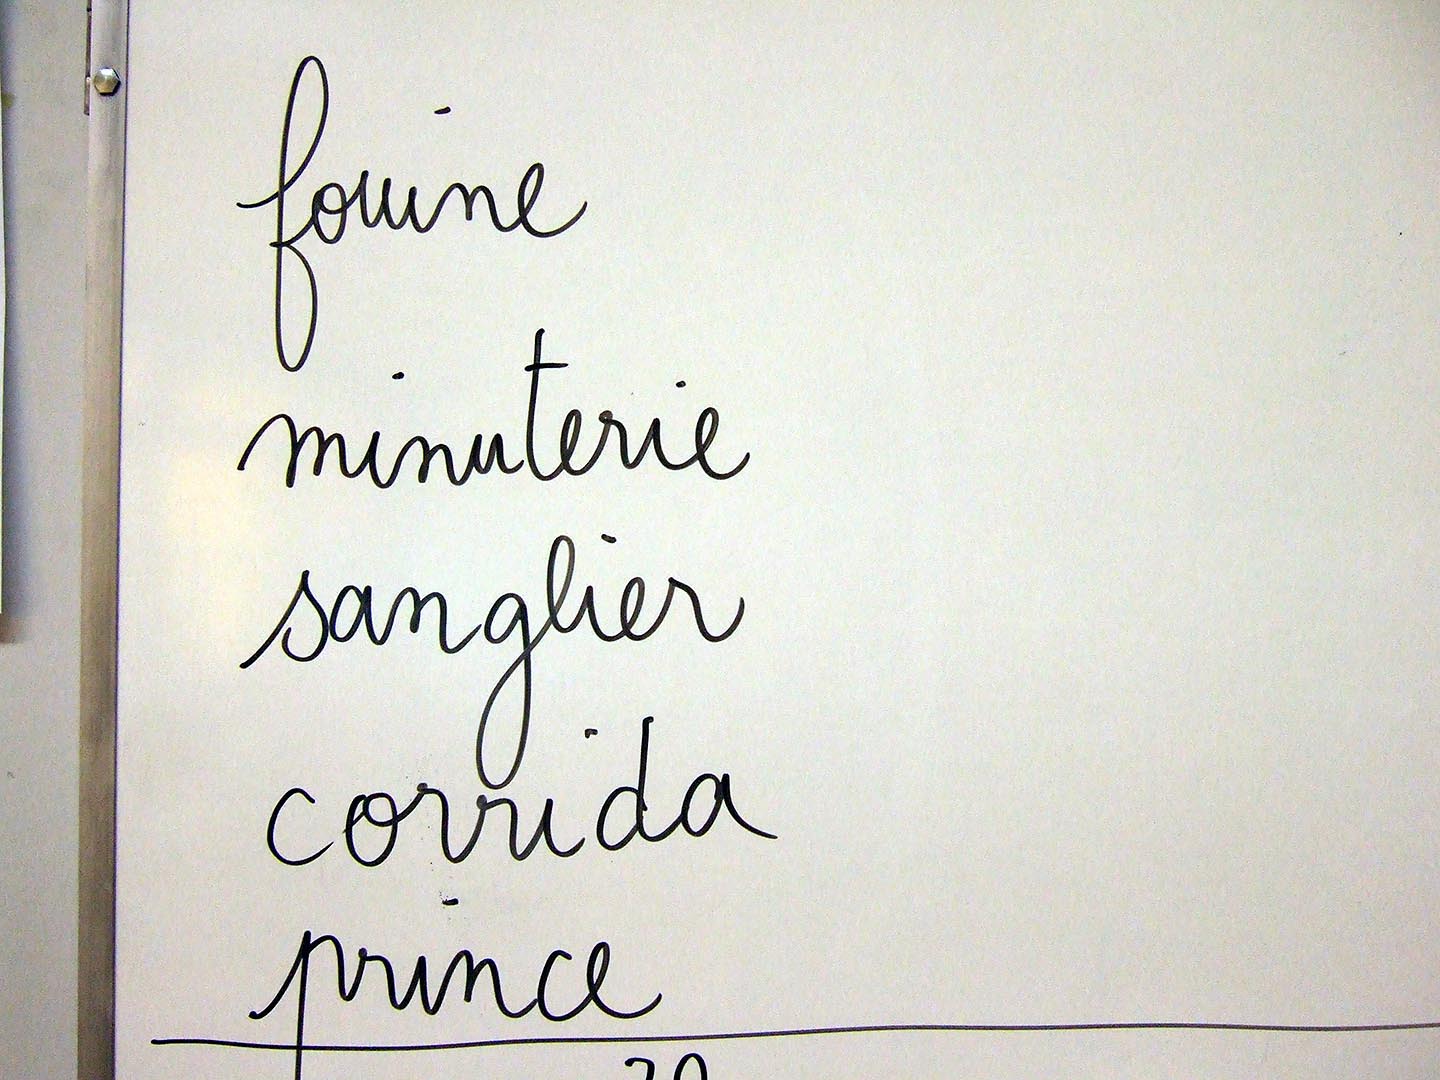 fouine
minuterie
sanglier
corrida
prince